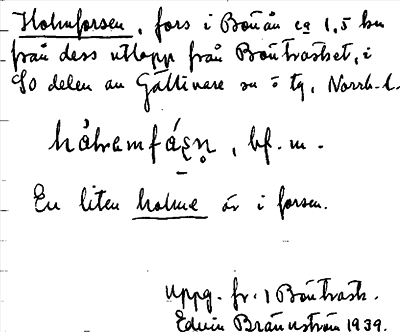 Holmforsen, fors i Boüån ca 1,5 km
från dess utlopp från Boüträsket, i
SO delen av Gällivare sn o tg, Norrb. l.
hå̀ļɐmfáʂn̥, bf. m.
En liten holme är i forsen.
Uppg. fr. i Boüträsk.
Edvin Brännström 1939.